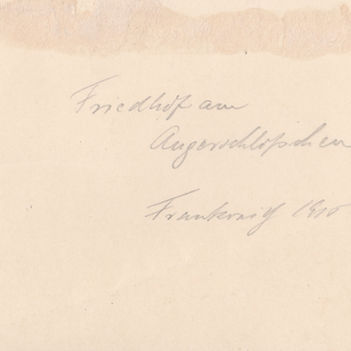 Friedhof am
Angerschlößchen
Frankreich 1915